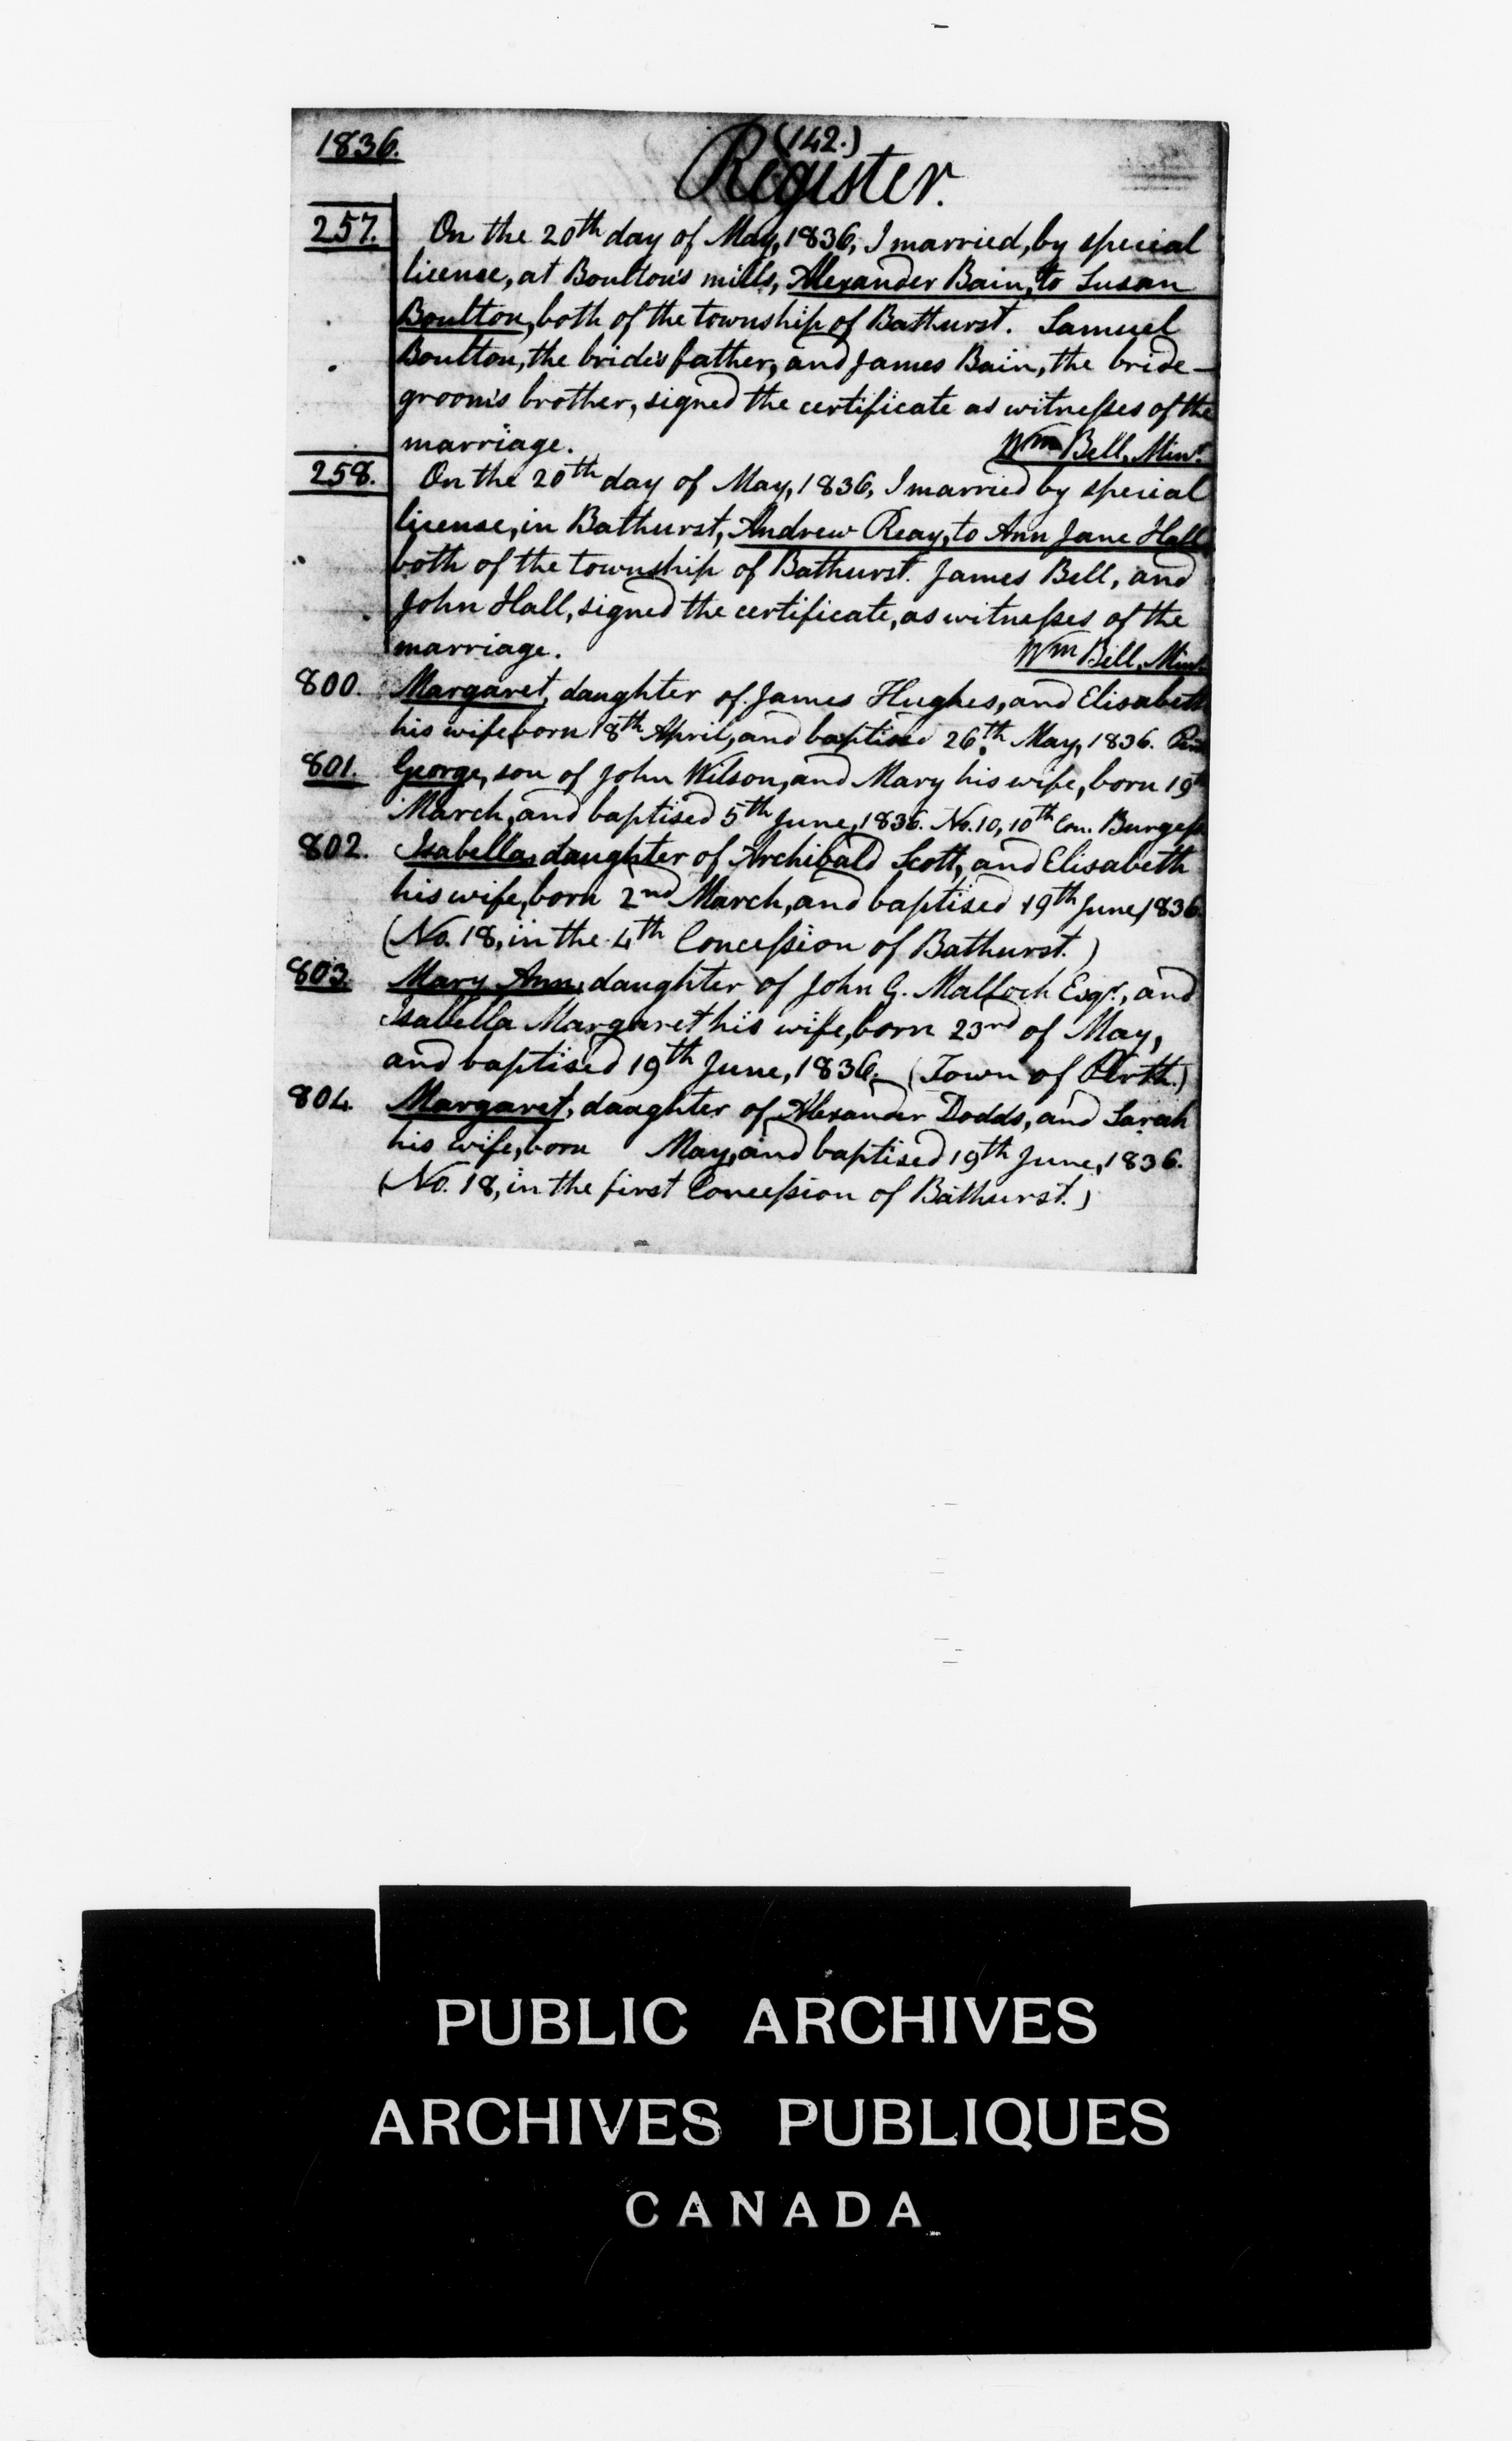 1836.
(142.)
Register.
257. On the 20th day of May, 1836, I married, by special
license, at Boulton's mills, Alexander Bain, to Susan
Boulton, both of the township of Bathurst. Samuel
Boulton, the bride's father, and James Bain, the bride-
groom's brother, signed the certificate as witnesses of the
marriage. Wm Bell, Minr.
258. On the 20th day of May, 1836, I married by special
license, in Bathurst, Andrew Reay, to Ann Jane Hall
both of the township of Bathurst. James Bell, and
John Hall, signed the certificate, as witnesses of the
marriage. Wm Bell, Minr.
800. Margaret, daughter of James Hughes, and Elisabeth
his wife, born 18th April, and baptised 26th May, 1836.
801. George, son of John Wilson, and Mary his wife, born 19th
March, and baptised 5th June, 1836. No. 10, 10th Con. Burgess
802. Isabella, daughter of Archibald Scott, and Elisabeth
his wife, born 2nd March, and baptised 19th June, 1836.
(No. 18, in the 4th Concession of Bathurst.)
803. Mary Ann, daughter of John G. Malloch Esqr., and
Isabella Margaret his wife, born 23rd of May,
and baptised 19th June, 1836. (Town of Perth.)
804. Margaret, daughter of Alexander Dodds, and Sarah
his wife, born May, and baptised 19th June, 1836.
(No. 18, in the first Concession of Bathurst.)
PUBLIC ARCHIVES
ARCHIVES PUBLIQUES
CANADA